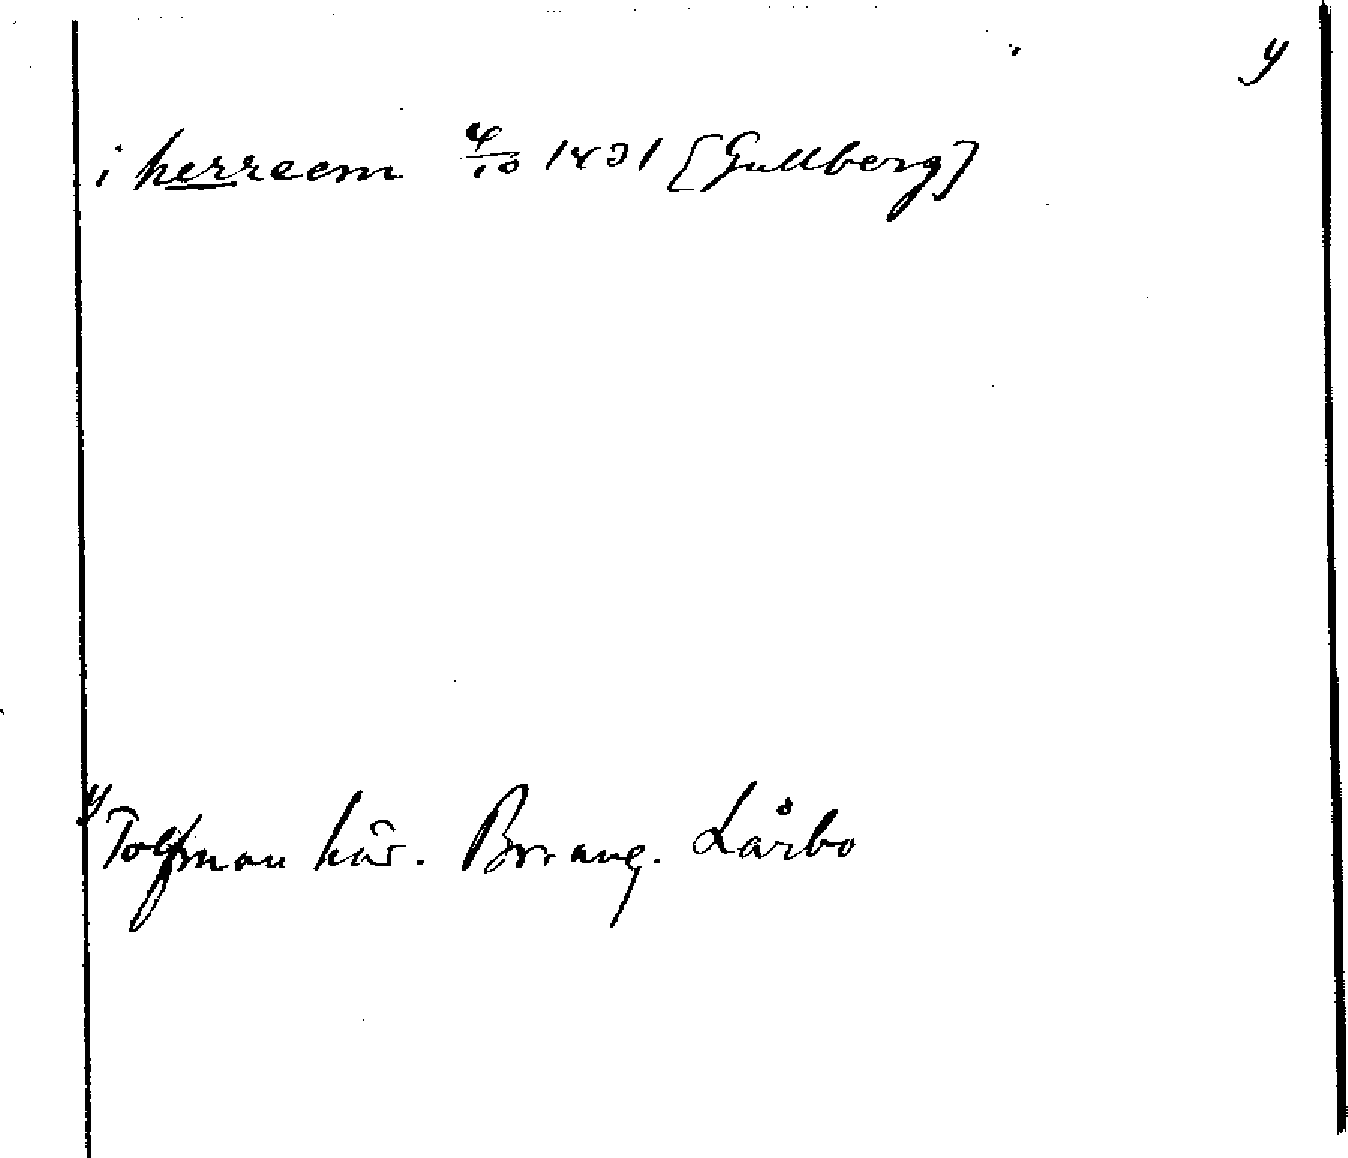 y
i herreem 4/10 1431 [Gullberg]
y Tolfman här. Brr ang. Lårbo